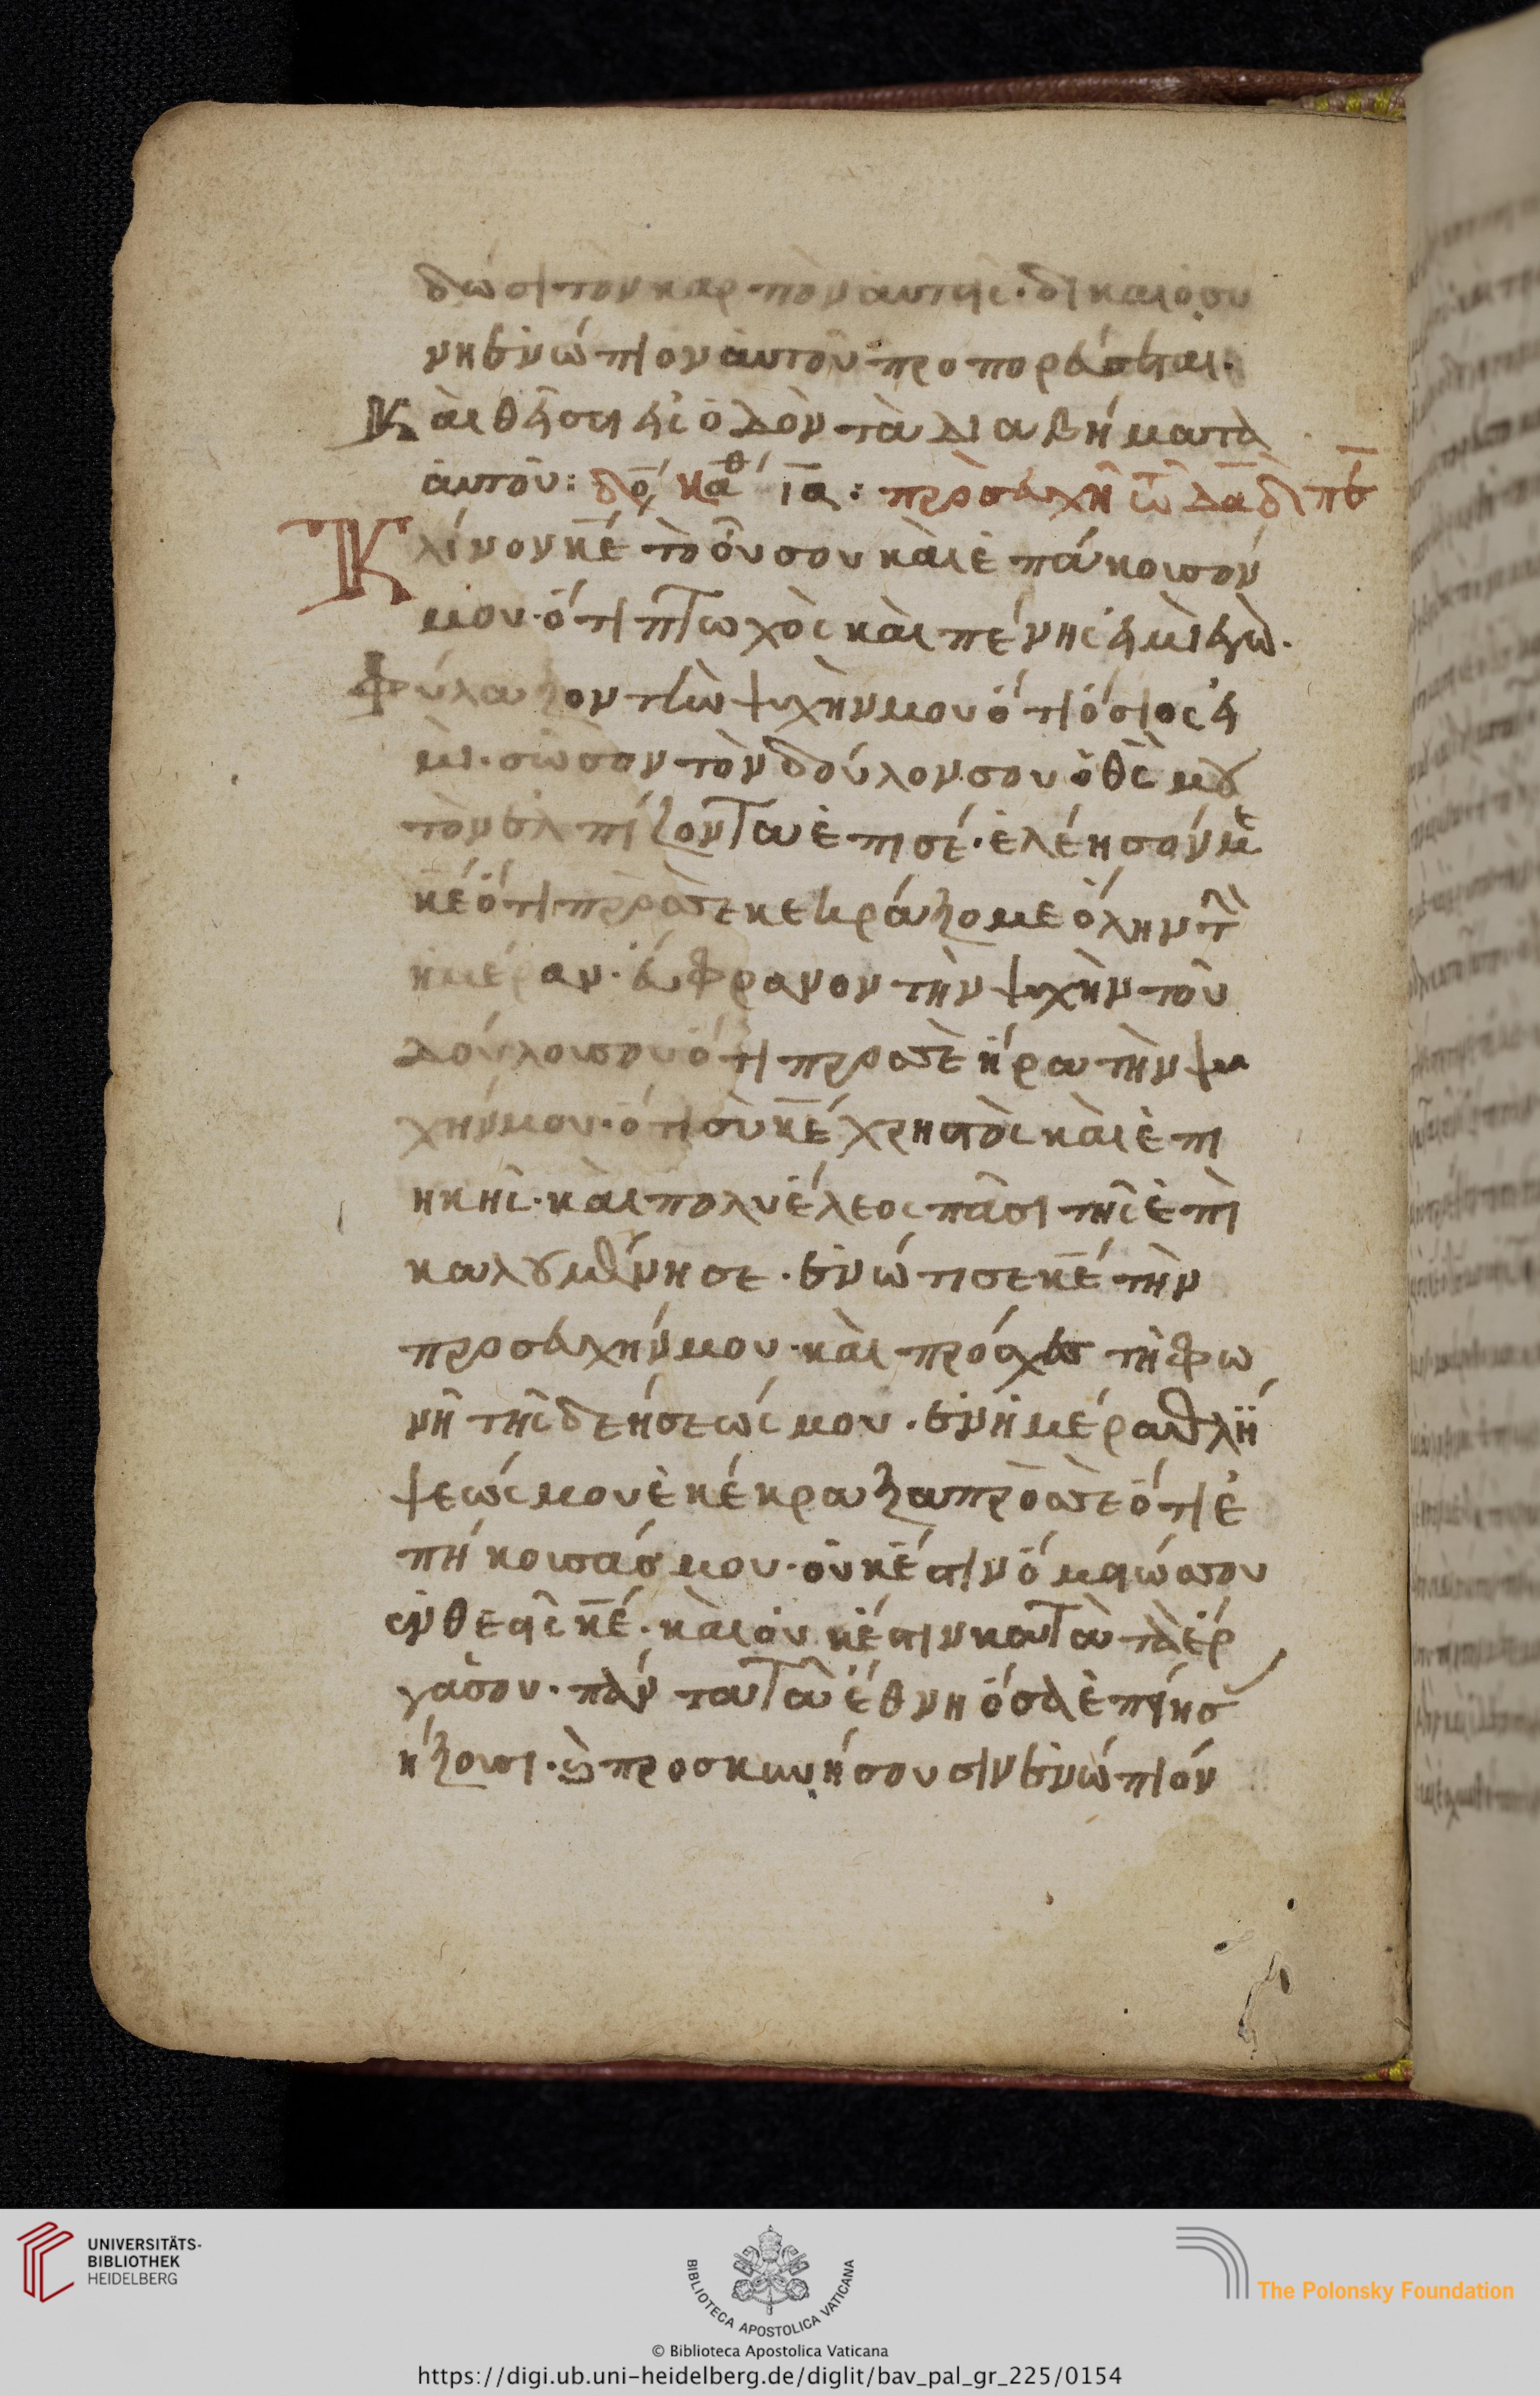 δώσι τὸν καρπὸν ἀυτῆς· δικαιοσυ
νη ἐνώπιον ἀυτοῦ προπορέυσεται·
Κὰι θήσει εἰς ὁδὸν τὰ διαβήματα
ἀυτοῦ: δό κάθ ια: προσευχὴ τῶ δαδ πε
Κλίνον κε τὸ οὖς σου κὰι ἐπάκουσόν
μου· ὅτι πτωχὸς κὰι πένης εἰμὶ ἐγὼ·
Φύλαξον τὴν ψυχήν μου ὅτι ὅσιος εἰ
μὶ· σῶσον τὸν δούλον σου ὁ θς μου
τὸν ἐλπίζοντα ἐπι σέ· ἐλέησόν με
κε ὅτι πρὸς σε κεκράξομε ὅλην τὴν
ἡμέραν· ἔυφρανον τὴν ψυχὴν τοῦ
δούλου σου ὅτι πρὸς σε ἦρα τὴν ψυ
χήν μου· ὅτι σὺ κε χρηστὸς κὰι ἐπι
ηκὴς· κὰι πολυέλεος πᾶσι τῆς ἐπὶ
καλουμένης σε· ἐνώτισε κε τὴν
προσευχήν μου· κὰι πρόσχες τὴ φω
νῆ τῆς δεήσεώς μου· ἐν ἡμέρα θλή
ψεώς μου ἐκέκραξα πρὸς σε ὅτι ἐ
πήκουσάς μου· οὐκ ἔστιν ὅμοιός σου
ἐν θεοῖς κε· κὰι οὐκ ἔστιν κατὰ τὰ ἔρ
γα σου· πάντα τὰ ἔθνη ὅσα ἐποίησ
ήξουσι· κὰι προσκυνήσουσιν ἐνώπιόν
UNIVERSITÄTS-
BIBLIOTHEK
HEIDELBERG
BIBLIOTECA APOSTOLICA VATICANA
The Polonsky Foundation
© Biblioteca Apostolica Vaticana
https://digi.ub.uni-heidelberg.de/diglit/bav_pal_gr_225/0154